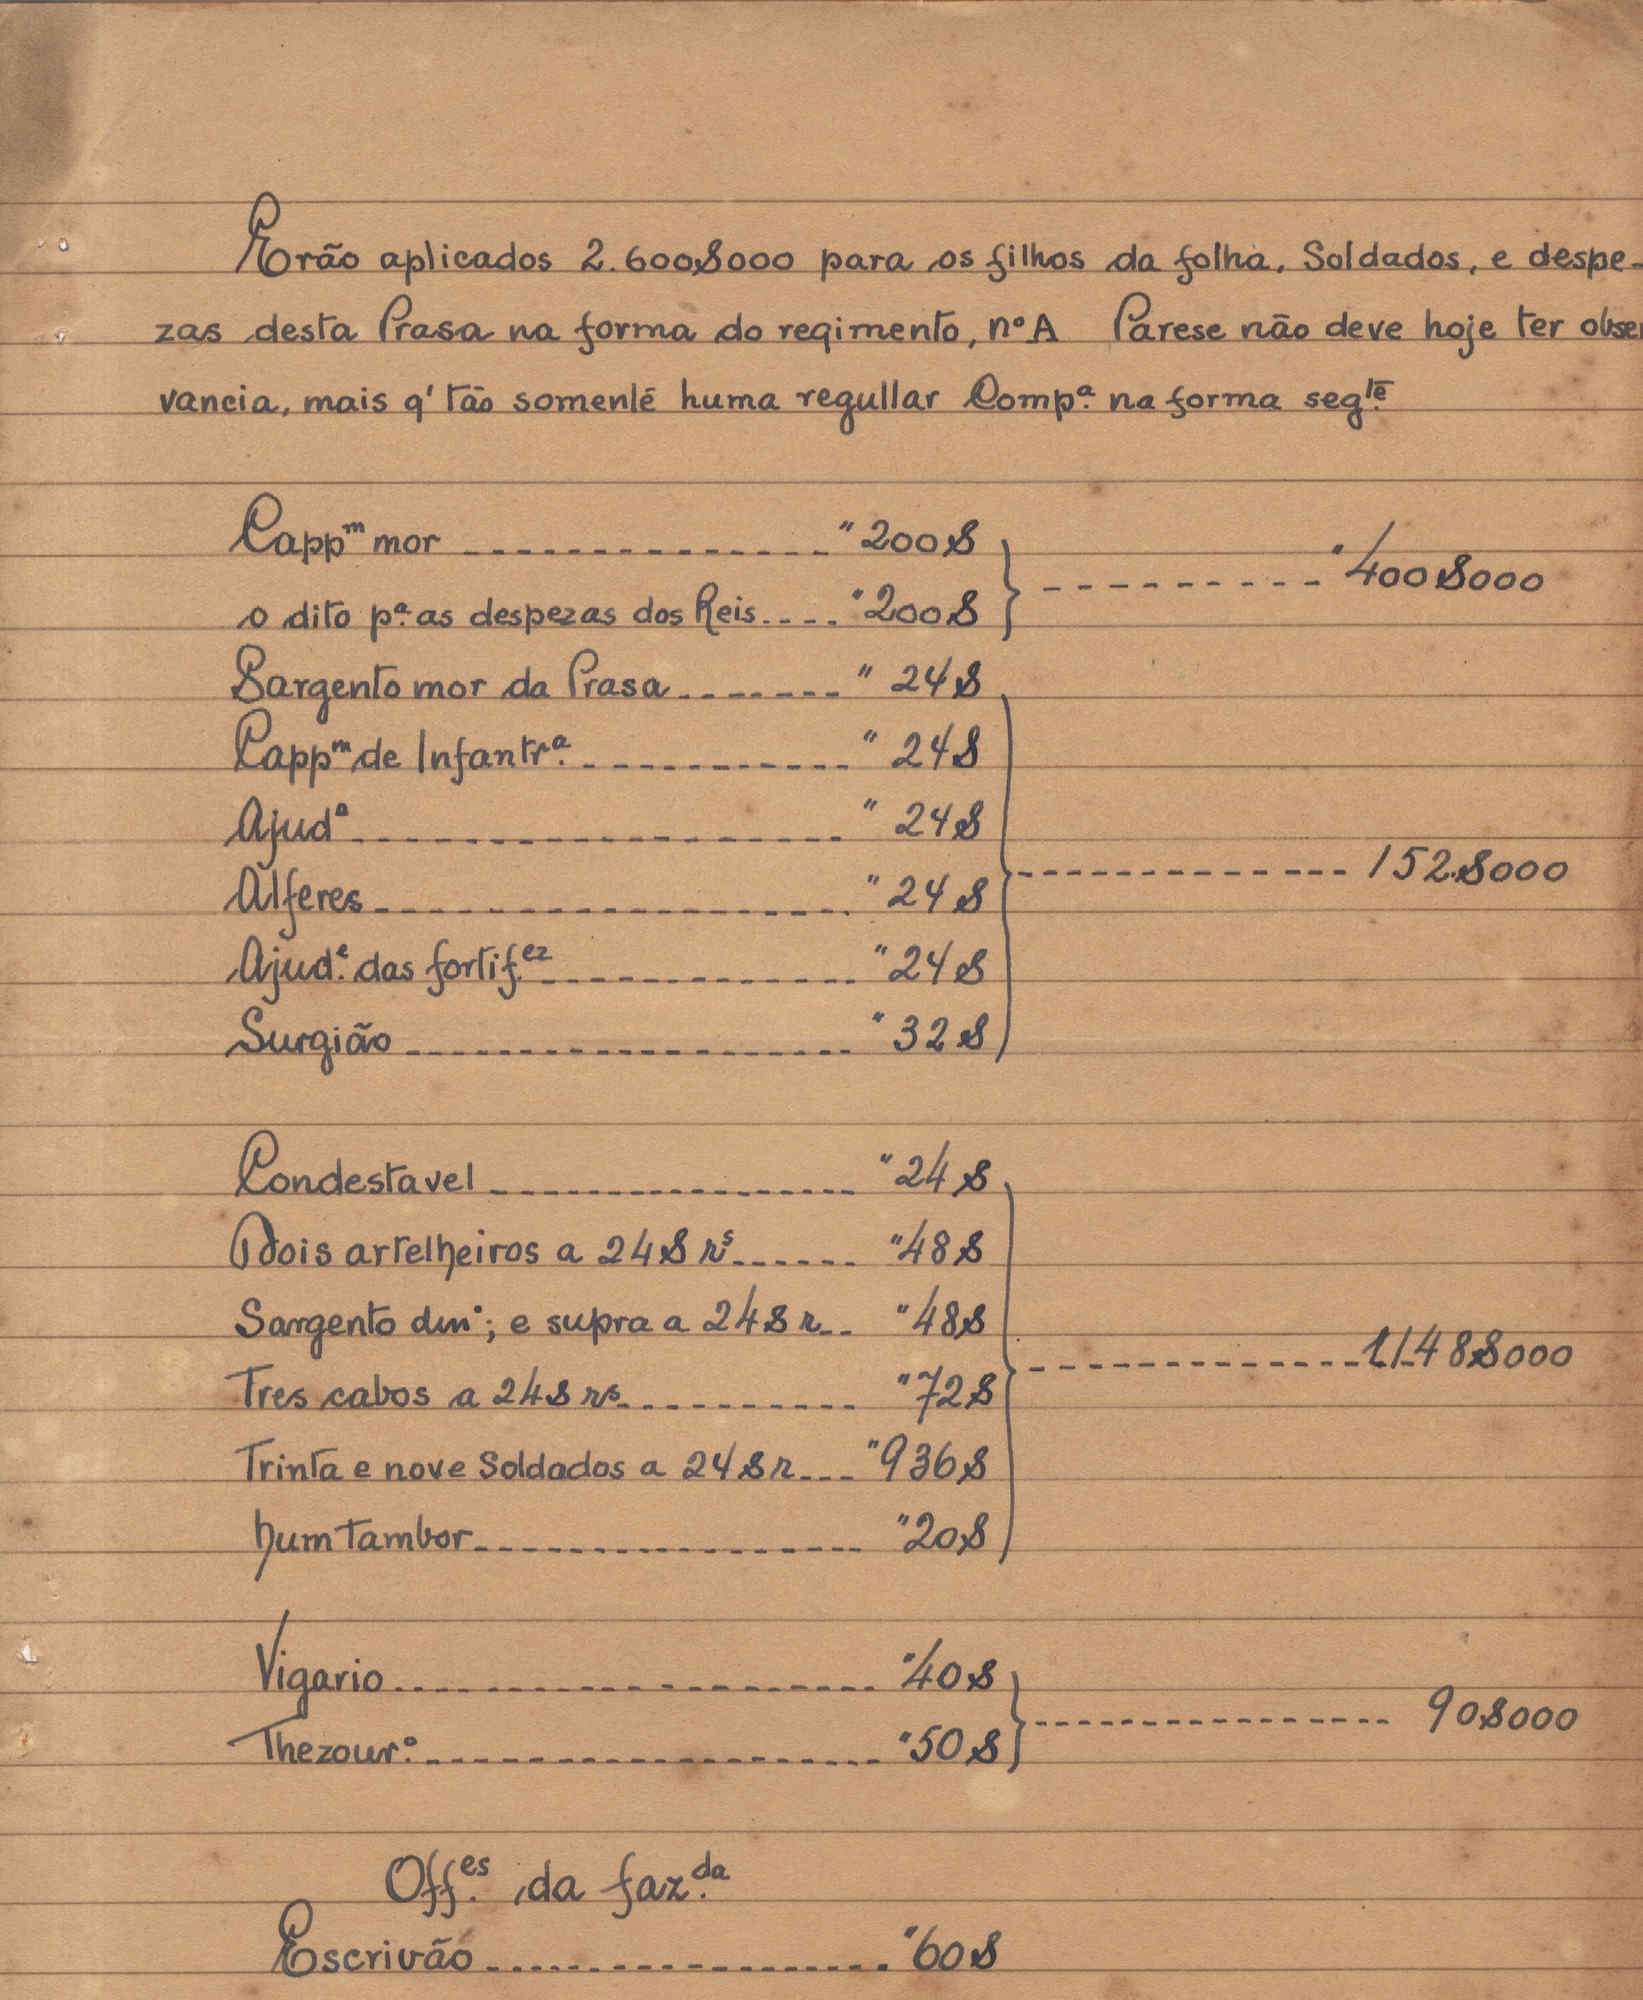 Erão aplicados 2.600$000 para os filhos da folha, Soldados, e despe-
zas desta Prasa na forma do regimento, nº A Parese não deve hoje ter obser
vancia, mais q' tão somente huma regullar Compª. na forma segtē
Cappm mor " 200$
o dito pª. as despezas dos Reis.... " 200$ " 400$000
Sargento mor da Prasa " 24$
Cappm de Infantrª. " 24$
Ajudª " 24$
Alferes " 24$ 152$000
Ajude. das fortifez " 24$
Surgião " 32$
Condestavel " 24$
Dois artelheiros a 24$ rs " 48$
Sargento ; e supra a 24$ r " 48$
Tres cabos a 24$ rs " 72$ 1148$000
Trinta e nove Soldados a 24$ r " 936$
hum Tambor " 20$
Vigario " 40$
Thezourº " 50$ 90$000
Offes. da fazda.
Escrivão " 60$